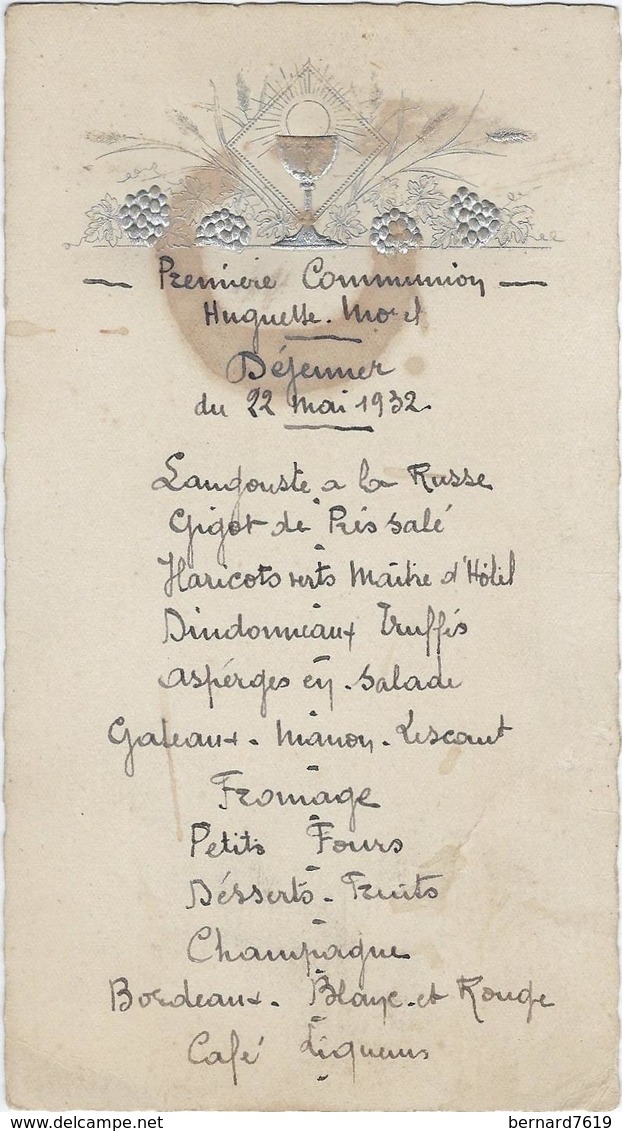 — Première Communion —
Huguette. Morel
Déjeuner
du 22 mai 1932.
Langouste a la Russe
Gigot de Prés salé
Haricots verts Maître d'Hôtel
Dindonneaux Truffés
Aspérges en. Salade
Gateaux. Manon. Lescaut
Fromage
Petits Fours
Désserts. Fruits
Champagne
Bordeaux. Blanc. et Rouge
Café Liqueurs
delcampe.net
bernard7619